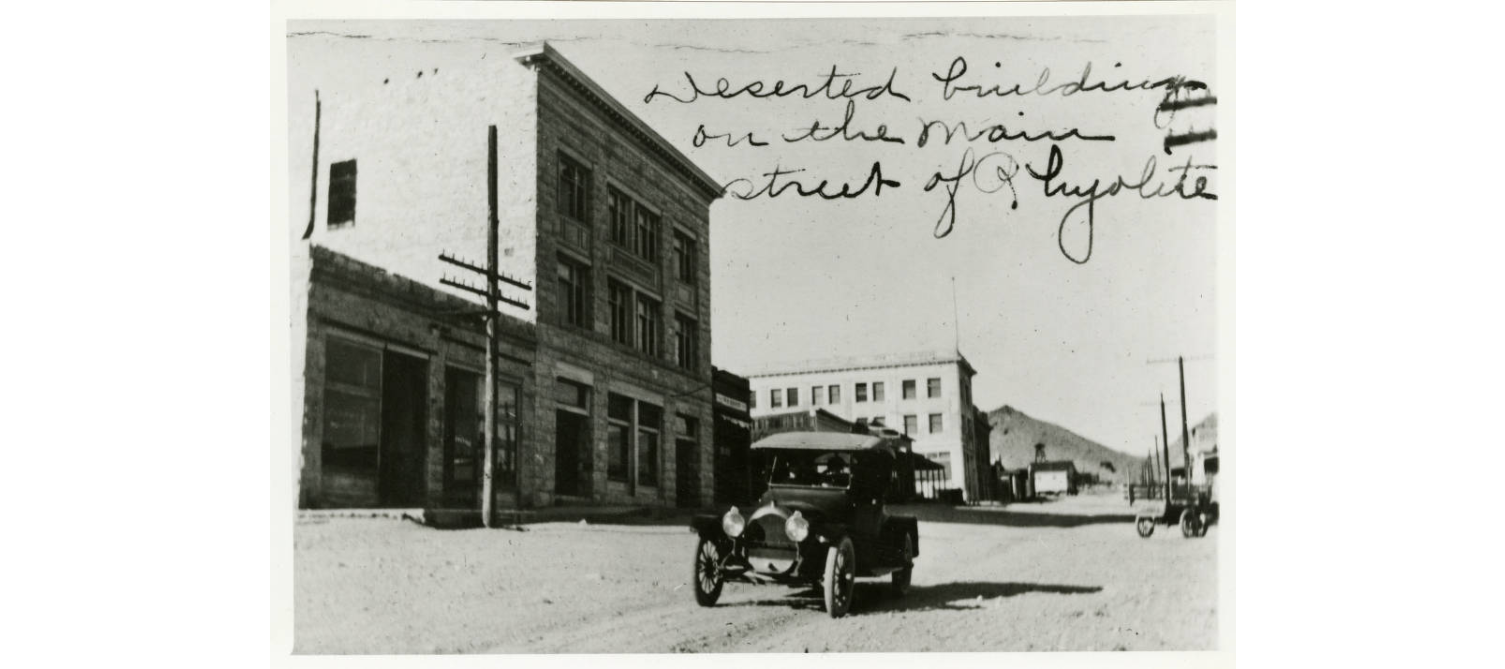 Deserted buildings
on the main
street of Rhyolite